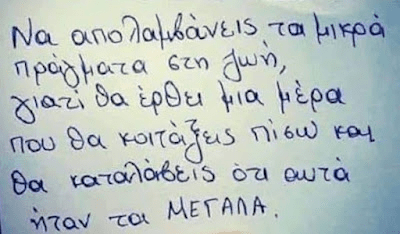 Να απολαμβάνεις τα μικρά
πράγματα στη ζωή,
γιατί θα έρθει μια μέρα
που θα κοιτάξεις πίσω και
θα καταλάβεις ότι αυτά
ήταν τα ΜΕΓΑΛΑ.